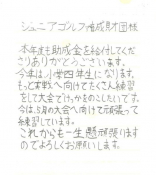 ジュニアゴルフ育成財団様
本年度も助成金を給付してくださりありがとうございます。
今年は小学四年生になります。
もっと本戦へ向けてたくさん練習
をして大会でけっかをのこしたいです。
今は、5月の大会へ向けて頑張って
練習しています。
これからも一生懸命頑張ります
のでよろしくお願いします。